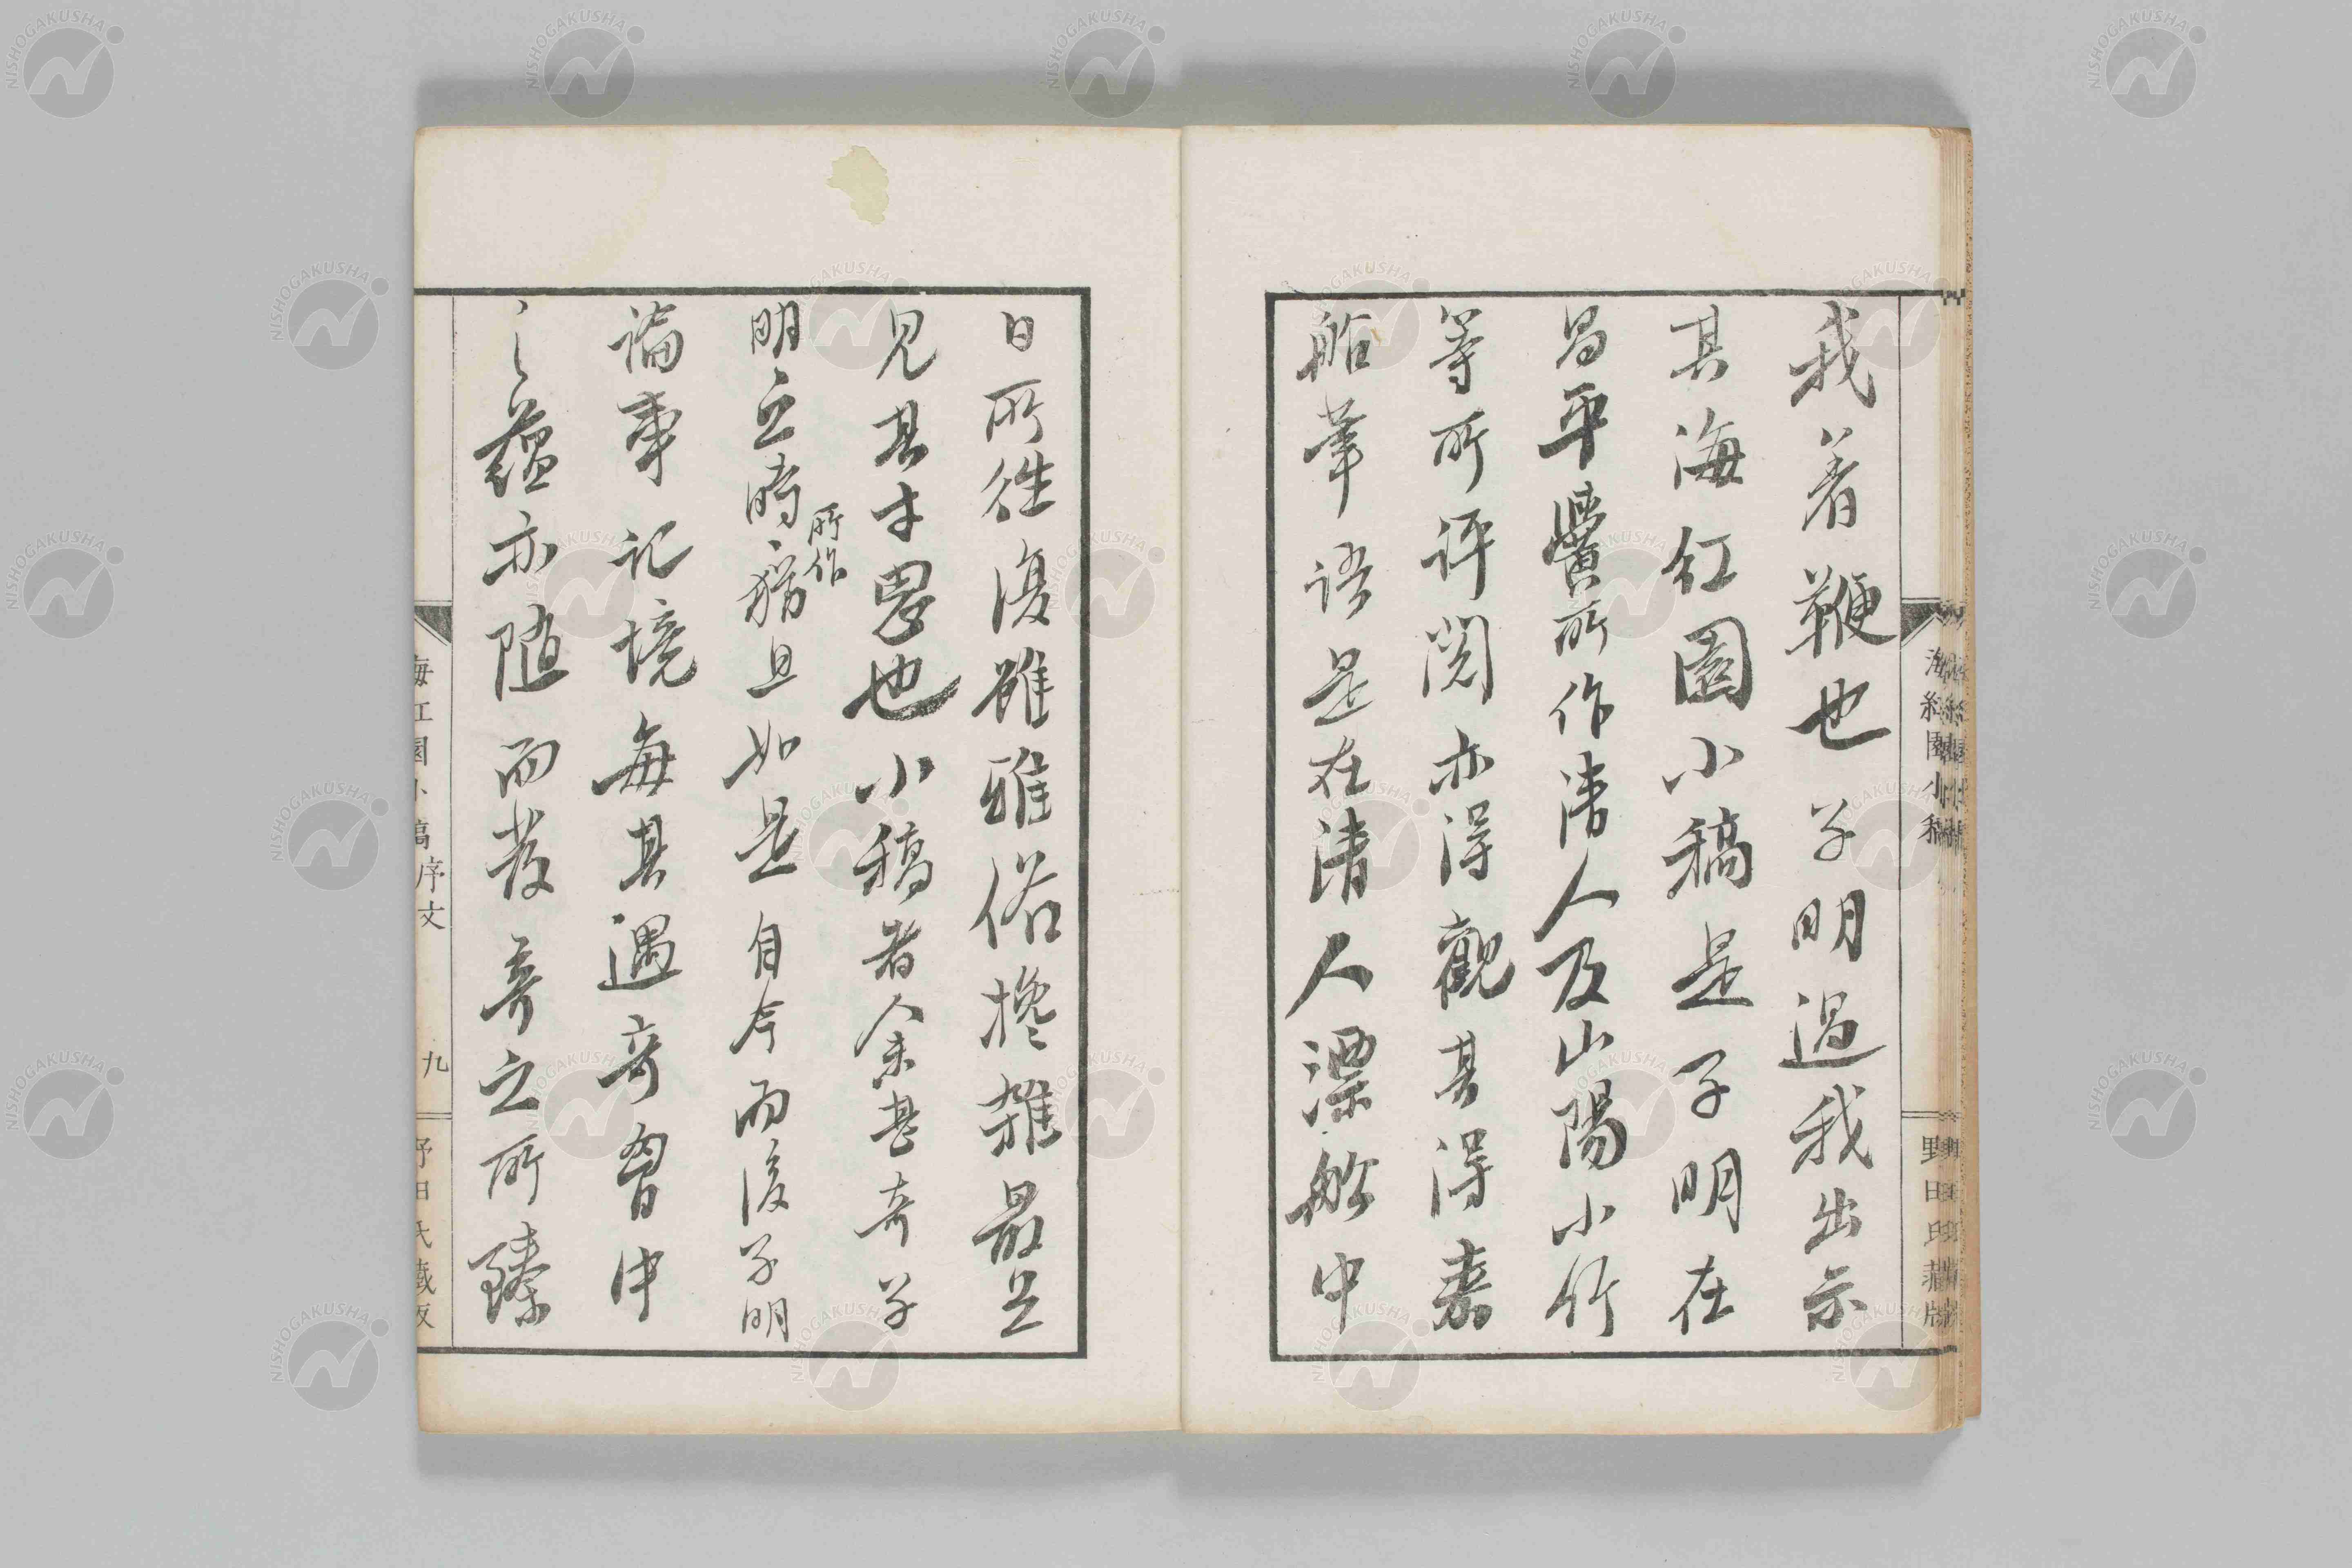 我着鞭也子明過我出示
其海紅園小稿是子明在
昌平黌所作清人及山陽小竹
等所評閲亦得觀其得泰
船筆語是在清人漂船中
海紅園小稿
野田氏藏版
日所徃復雖雅俗攙雜最足
見其才思也小稿者余甚奇子
明立時所作猶且如是自今而後子明
論事記境每其遇奇胷中
之蘊亦随而发奇之所臻
海紅園小稿序文
九
野田氏藏版
NISHOGAKUSHA